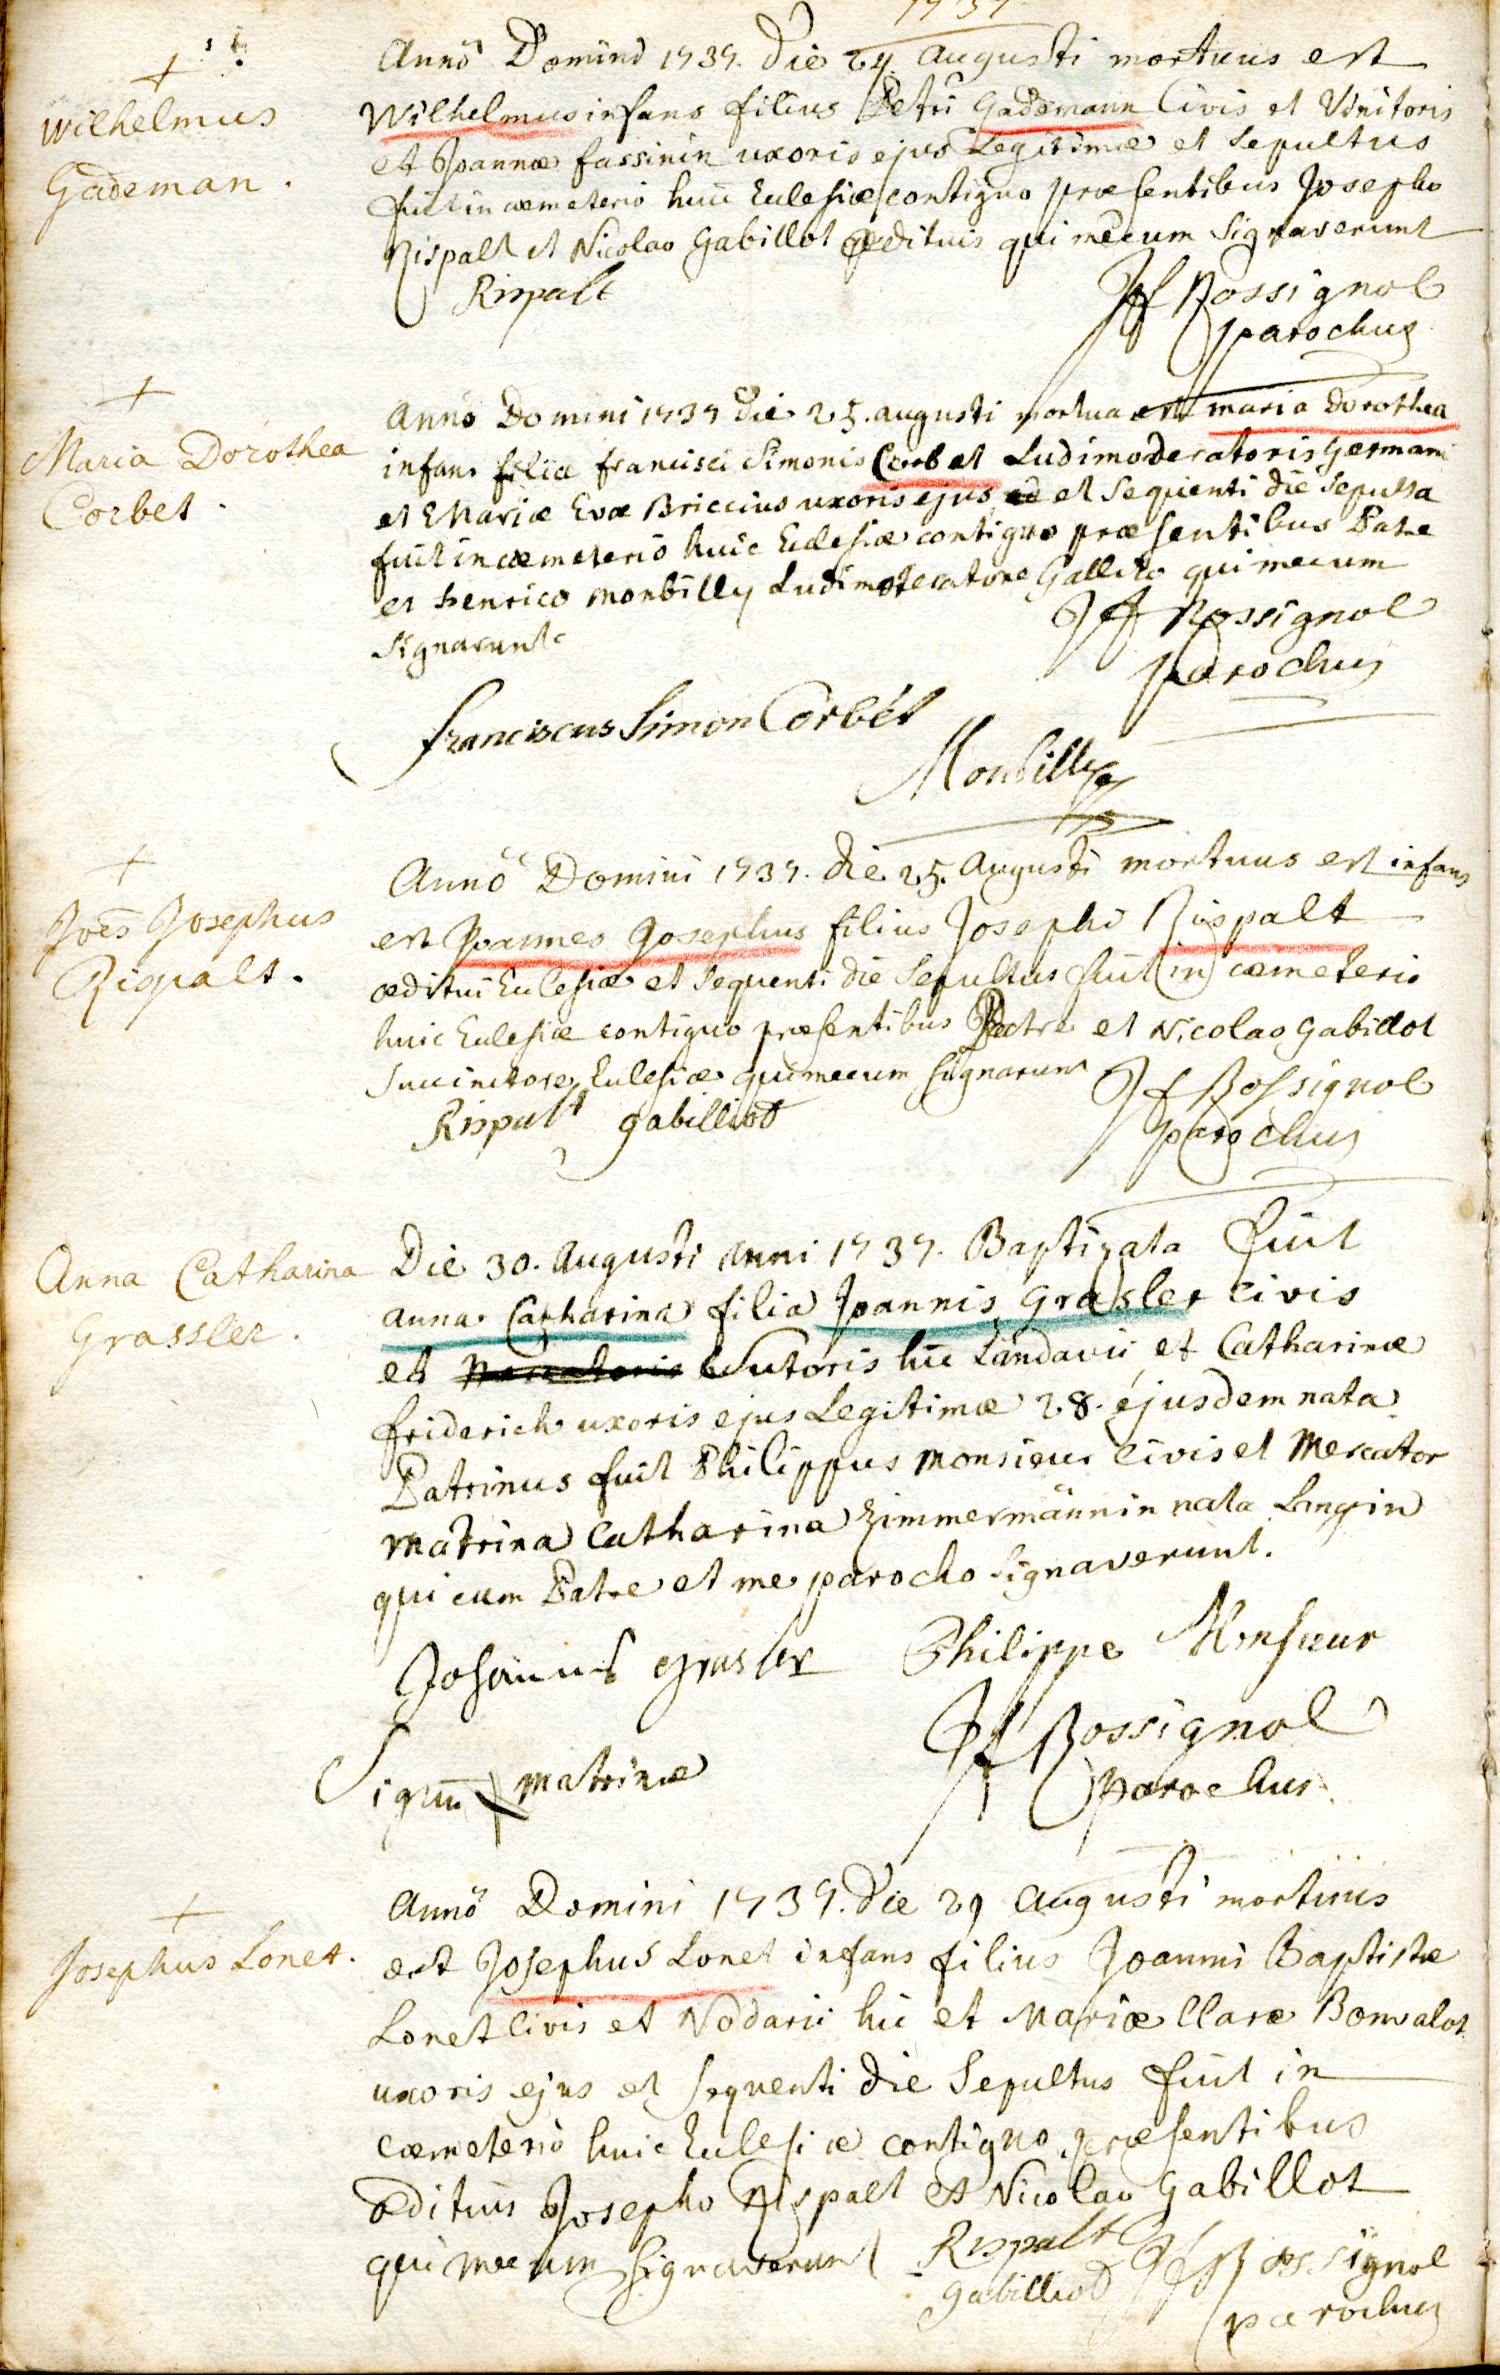 1737
+
Wilhelmus
Gademan.
Anno Domini 1737. die 24 Augusti mortuus est
Wilhelmus infans filius Petri Gademann Civis et Vinitoris
et Joannæ fassinin uxoris ejus Legitimæ et Sepultus
fuit in cœmeterio huic Eclesiæ contiguo præsentibus Josepho
Rispalt et Nicolao Gabillot ædituis qui mecum signaverunt
Rispalt
Rossignol
parochus
+
Maria Dorothea
Corbet.
Anno Domini 1737 die 25. augusti mortua est maria Dorothea
infans filia francisci Simonis Corbet Ludimoderatoris Germani
et Mariæ Evæ Briccius uxoris ejus et Sequenti die Sepulta
fuit in cœmeterio huic Eclesiæ contiguo præsentibus Patre
et henrico monbilly Ludimoderatore Gallico qui mecum
signarunt
Rossignol
parochus
franciscus Simon Corbét
Monbilly
+
Joēs Josephus
Rispalt.
Anno Domini 1737. die 25. Augusti mortuus est infans
est Joannes Josephus filius Josephi Rispalt
æditui Eclesiæ et Sequenti die Sepultus fuit in cœmeterio
huic Eclesiæ contiguo præsentibus Patre et Nicolao Gabillot
Succinctore Eclesiæ qui mecum signarunt
Rossignol
Rispalt gabilliot
parochus
Anna Catharina
Grassler.
Die 30. Augusti anni 1737. Baptizata fuit
anna Catharina filia Joannis Grassler Civis
et Sutoris hic Landavii et Catharinæ
friderich uxoris ejus Legitimæ 28. ejusdem nata
Patrinus fuit Philippus Monsieur Civis et Mercator
Matrina Catharina Zimmermännin nata Langin
qui cum Patre et me parocho signaverunt.
Johannes Grasler Philippe Monsieur
Rossignol
Signū + matrinæ
parochus
+
Josephus Lonet.
Anno Domini 1737. die 29 Augusti mortuus
est Josephus Lonet infans filius Joanni Baptistæ
Lonet Civis et Nodarii hic et Mariæ Claræ Bonvalot
uxoris ejus et sequenti die Sepultus fuit in
cœmeterio huic Eclesiæ contiguo præsentibus
ædituis Josepho Rispalt et Nicolao Gabillot
qui mecum signaverunt Rispalt Rossignol
gabilliot parochus